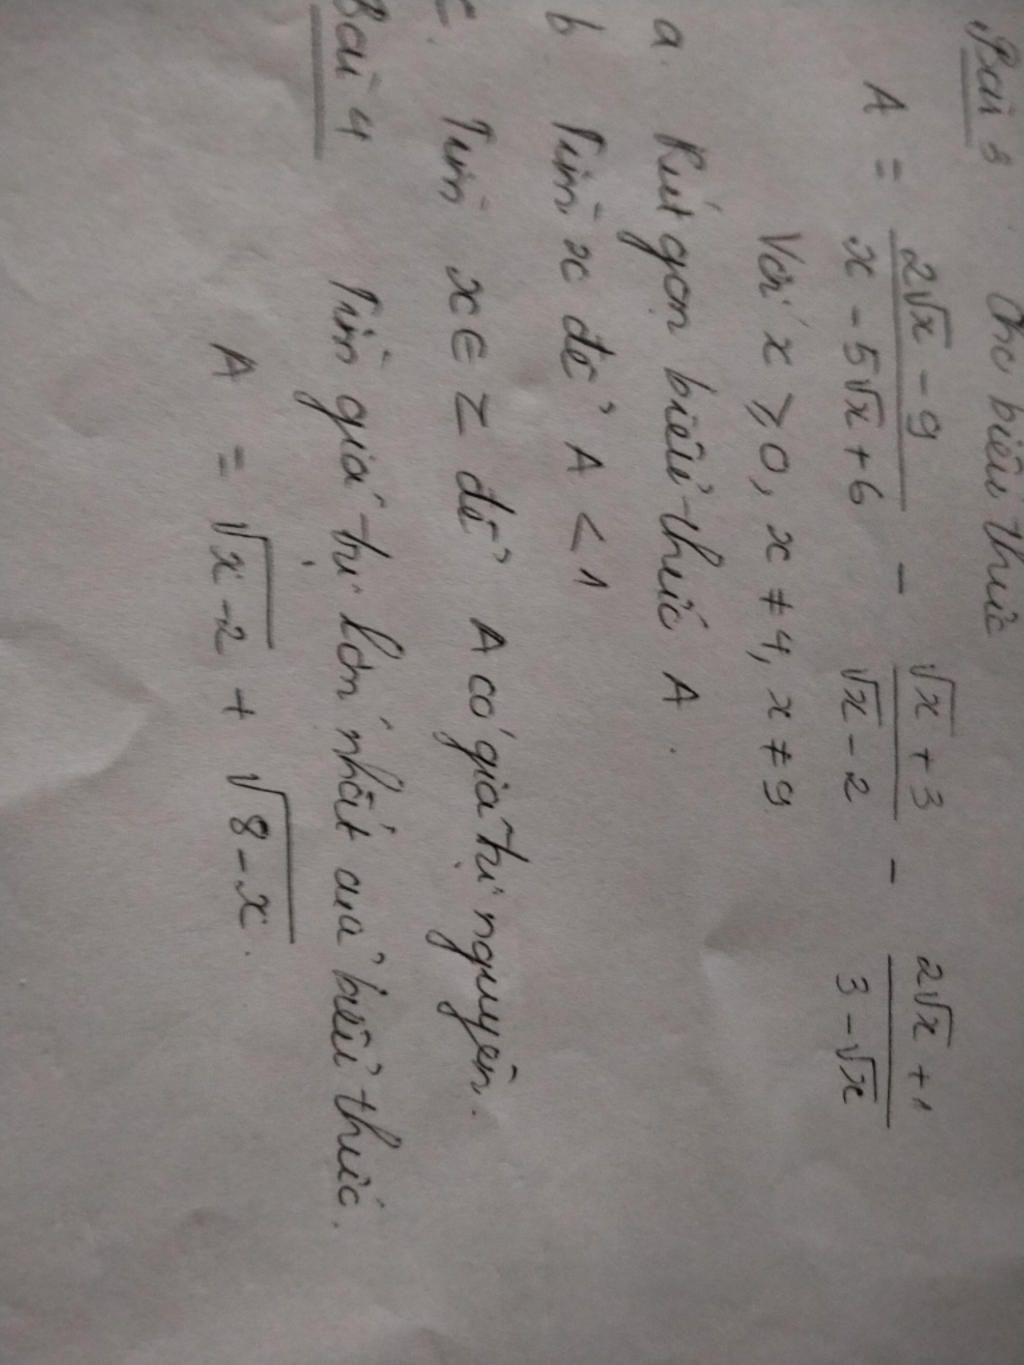 Bài 3. Cho biểu thức
A = (2√x - 9)/(x - 5√x + 6) - (√x + 3)/(√x - 2) - (2√x + 1)/(3 - √x)
Với x ⩾ 0, x ≠ 4, x ≠ 9
a. Rút gọn biểu thức A.
b Tìm x để A < 1
c. Tìm x ∈ Z để A có giá trị nguyên.
Bài 4 Tìm giá trị lớn nhất của biểu thức.
A = √(x - 2) + √(8 - x).